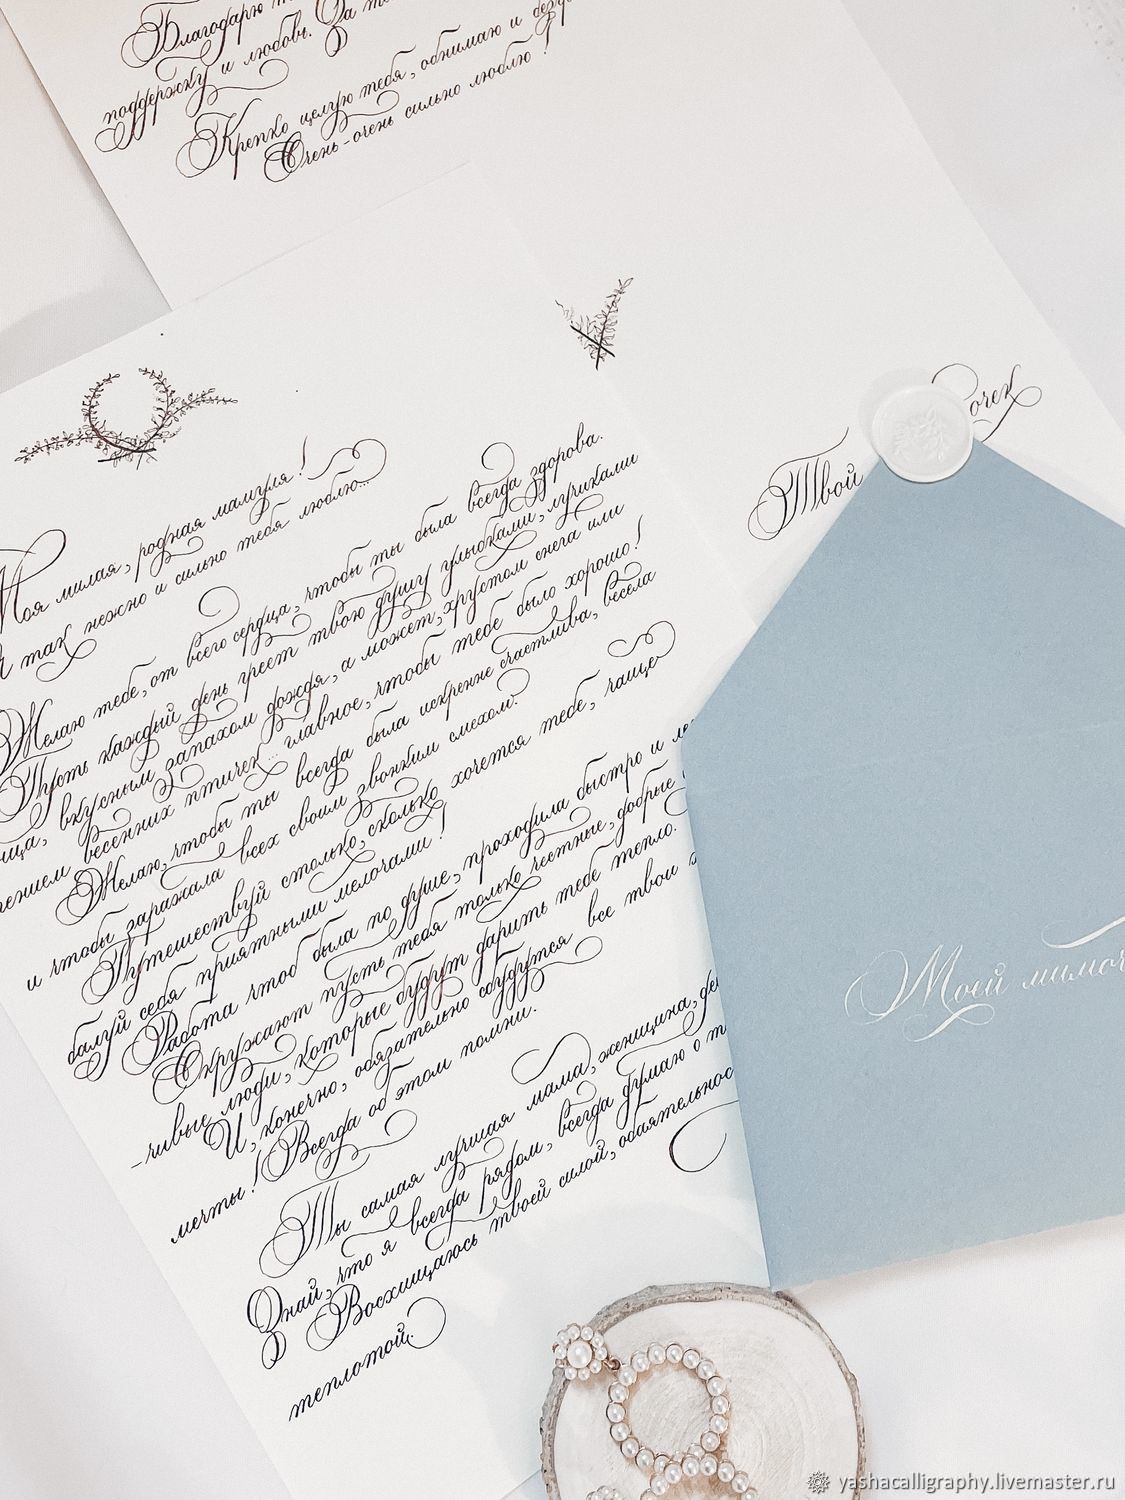 Благодарю
поддержку и любовь. За
Крепко целую тебя, обнимаю и
Очень-очень сильно люблю!
Твой
Моя милая, родная мамуля!
Я так нежно и сильно тебя люблю...
Желаю тебе, от всего сердца, чтобы ты была всегда здорова.
Пусть каждый день греет твою душу улыбками, лучиками
вкусным запахом дождя, а может, хрустом снега или
весенних птичек... главное, чтобы тебе было хорошо!
Желаю, чтобы ты всегда была искренне счастлива, весела
и чтобы заражала всех своим звонким смехом.
Путешествуй столько, сколько хочется тебе, чаще
балуй себя приятными мелочами!
Работа чтоб была по душе, проходила быстро и
Окружают пусть тебя только честные, добрые
-чивые люди, которые будут дарить тебе тепло.
И, конечно, обязательно сбудутся все твои
мечты! Всегда об этом помни.
Ты самая лучшая мама, женщина,
Знай, что я всегда рядом, всегда думаю о
Восхищаюсь твоей силой,
теплотой.
Моей
yashacalligraphy.livemaster.ru